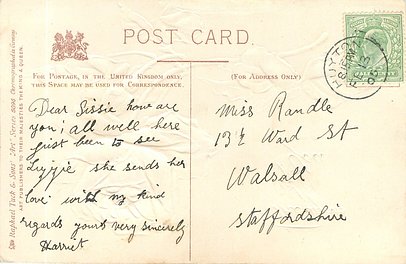 POST CARD.
FOR POSTAGE, IN THE UNITED KINGDOM ONLY,
THIS SPACE MAY BE USED FOR CORRESPONDENCE.
(FOR ADDRESS ONLY)
HUYTON
Dear Sissie how are
you; all well here
just been to see
Lizzie she sends her
love with my kind
regards yours very sincerely
Harriet
Miss Randle
13½ Ward St
Walsall
Staffordshire
Raphael Tuck & Sons' "Art" Series
ART PUBLISHERS TO THEIR MAJESTIES THE KING & QUEEN.